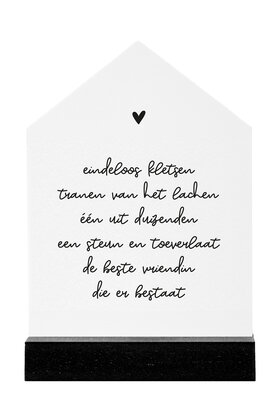 eindeloos kletsen
tranen van het lachen
één uit duizenden
een steun en toeverlaat
de beste vriendin
die er bestaat